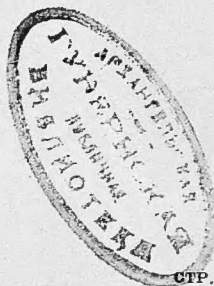 АРХАНГЕЛЬСКАЯ
ГУБЕРНСКАЯ
ПУБЛИЧНАЯ
БИБЛИОТЕКА
СТР.